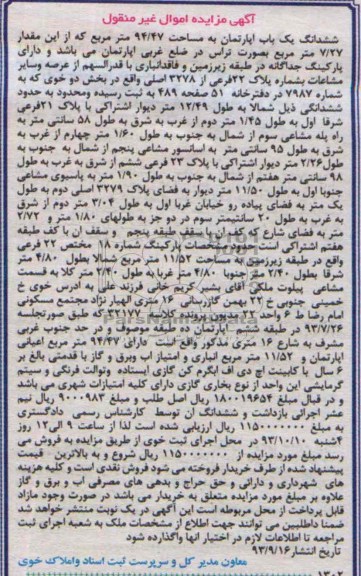 آگهی مزایده اموال غیر منقول
ششدانگ یک باب اپارتمان به مساحت ۹۴/۴۷ متر مربع که از این مقدار
۷/۲۷ متر مربع بصورت تراس در ضلع غربی اپارتمان می باشد و دارای
پارکینگ جداگانه در طبقه زیرزمین و فاقدانباری با قدرالسهم از عرصه وسایر
مشاعات بشماره پلاک ۲۲فرعی از ۳۲۷۸ اصلی واقع در بخش دو خوی که به
شماره ۷۹۸۷ در دفترخانه ۵۱ صفحه ۴۸۹ به ثبت رسیده ومحدود به حدود
ششدانگی ذیل شمالا به طول ۱۲/۴۹ متر دیوار اشتراکی با پلاک ۲۱فرعی
شرقا اول به طول ۱/۴۵ متر دوم از غرب به شرق به طول ۵۸ سانتی متر به
راه پله مشاعی سوم از شمال به جنوب به طول ۱/۶۰ متر چهارم از غرب به
شرق به طول ۹۵ سانتی متر به اسانسور مشاعی پنجم از شمال به جنوب به
طول۲/۲۶ متر دیوار اشتراکی با پلاک ۲۳ فرعی ششم از شرق به غرب به طول
۹۸ سانتی متر هفتم از شمال به جنوب به طول ۱/۹۰ متر به پاسیوی مشاعی
جنوبا اول به طول ۱۱/۵۰ متر دیوار به فضای پلاک ۳۲۷۹ اصلی دوم به طول
یک متر به فضای پیاده رو خیابان غربا اول به طول ۳/۰۴ متر دوم از شرق
به غرب به طول ۲۰ سانتیمتر سوم در دو جز به طولهای ۱/۸۰ متر و ۲/۷۲
متر به فضای شارع که کف ان با سقف طبقه پنجم و سقف ان با کف طبقه
هفتم اشتراکی است حدود و مشخصات پارکینگ شماره ۱۸ مختص ۲۲ فرعی
واقع در طبقه زیرزمین به مساحت ۱۱/۵۲ متر مربع شمالا بطول ۴/۸۰ متر
شرقا بطول ۲/۴۰ متر جنوبا ۴/۸۰ متر غربا به طول ۲/۴۰ متر کلا به قسمت
مشاعی پیلوت ملکی آقای بشیر کریم خانی فرزند علی به ادرس خوی خ
خمینی جنوبی خ ۲۲ بهمن گازرسانی ۱۶ متری الهیار نژاد مجتمع مسکونی
امام رضا ط ۶ واحد ۲۲ مدیون پرونده کلاسه ۳۲۱۷۷ که طبق صورتجلسه
۹۳/۷/۲۶ در طبقه ششم اپارتمان ده طبقه موصوف و در حد جنوب غربی
مشرف به شارع ۱۶ متری مذکور واقع است دارای ۹۴/۴۷ متر مربع اعیانی
اپارتمان و ۱۱/۵۲ متر مربع انباری و امتیاز اب وبرق و گاز با قدمتی بالغ بر
۶ سال با کابینت اچ دی اف ابگرم کن گازی ایستاده وتوالت فرنگی و سیتم
گرمایشی این واحد از نوع بخاری گازی دارای کلیه امتیازات شهری می باشد
و در قبال مبلغ ۱۸۰۰۱۹۶۵۴ ریال اصل طلب و مبلغ ۹۰۰۰۹۸۳ ریال نیم
عشر اجرائی بازداشت و ششدانگ ان توسط کارشناس رسمی دادگستری
به مبلغ ۱۱۵۰۰۰۰۰۰۰ ریال ارزیابی شده است لذا از ساعت ۹ الی۱۲ روز
۴شنبه ۹۳/۱۰/۱۰ در محل اجرای ثبت خوی از طریق مزایده به فروش می
رسد مبلغ مورد مزایده از ۱۱۵۰۰۰۰۰۰۰ ریال شروع و به بالاترین قیمت
پیشنهاد شده از طرف خریدار فروخته می شود فروش نقدی است و کلیه هزینه
های شهرداری و دارائی و حق حراج و بدهی های مصرفی اب و برق و گاز
علاوه بر مبلغ مورد مزایده متعلق به خریدار می باشد در صورت وجود مازاد
قابل پرداخت از محل مربوطه است این آگهی در یک نوبت منتشر خواهد شد
ضمنا داطلبین می توانند جهت اطلاع از مشخصات ملک به شعبه اجرای ثبت
مراجعه تا اطلاعات لازم در اختیار انها واگذارده شود
تاریخ انتشار۹۳/۹/۱۶
معاون مدیر کل و سرپرست ثبت اسناد واملاک خوی
۱۳۰۲